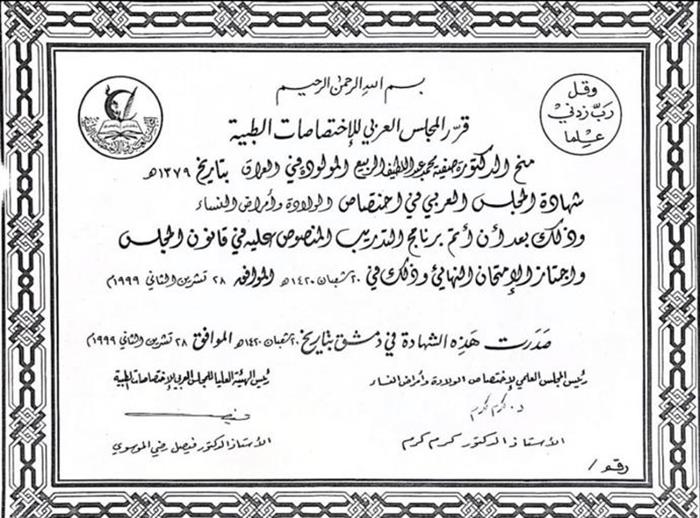 بسم الله الرحمن الرحيم
وقل
رب زدني
علما
قرر المجلس العربي للإختصاصات الطبية
منح الدكتورة صفية محمد عبد اللطيف الربيع المولودة في العراق بتاريخ ١٣٧٩هـ
شهادة المجلس العربي في اختصاص الولادة وأمراض النساء
وذلك بعد أن أتم برنامج التدريب المنصوص عليه في قانون المجلس
واجتاز الإمتحان النهائي وذلك في ٢٠/شعبان ١٤٢٠هـ الموافق ٢٨ تشرين الثاني ١٩٩٩م
صدرت هذه الشهادة في دمشق بتاريخ ٢٠/شعبان ١٤٢٠هـ الموافق ٢٨ تشرين الثاني ١٩٩٩م
رئيس المجلس العلمي لإختصاص الولادة وأمراض النساء
رئيس الهيئة العليا للمجلس العربي للإختصاصات الطبية
د. كرم كرم
الأستاذ الدكتور كرم كرم
الأستاذ الدكتور فيصل رضي الموسوي
رقم /